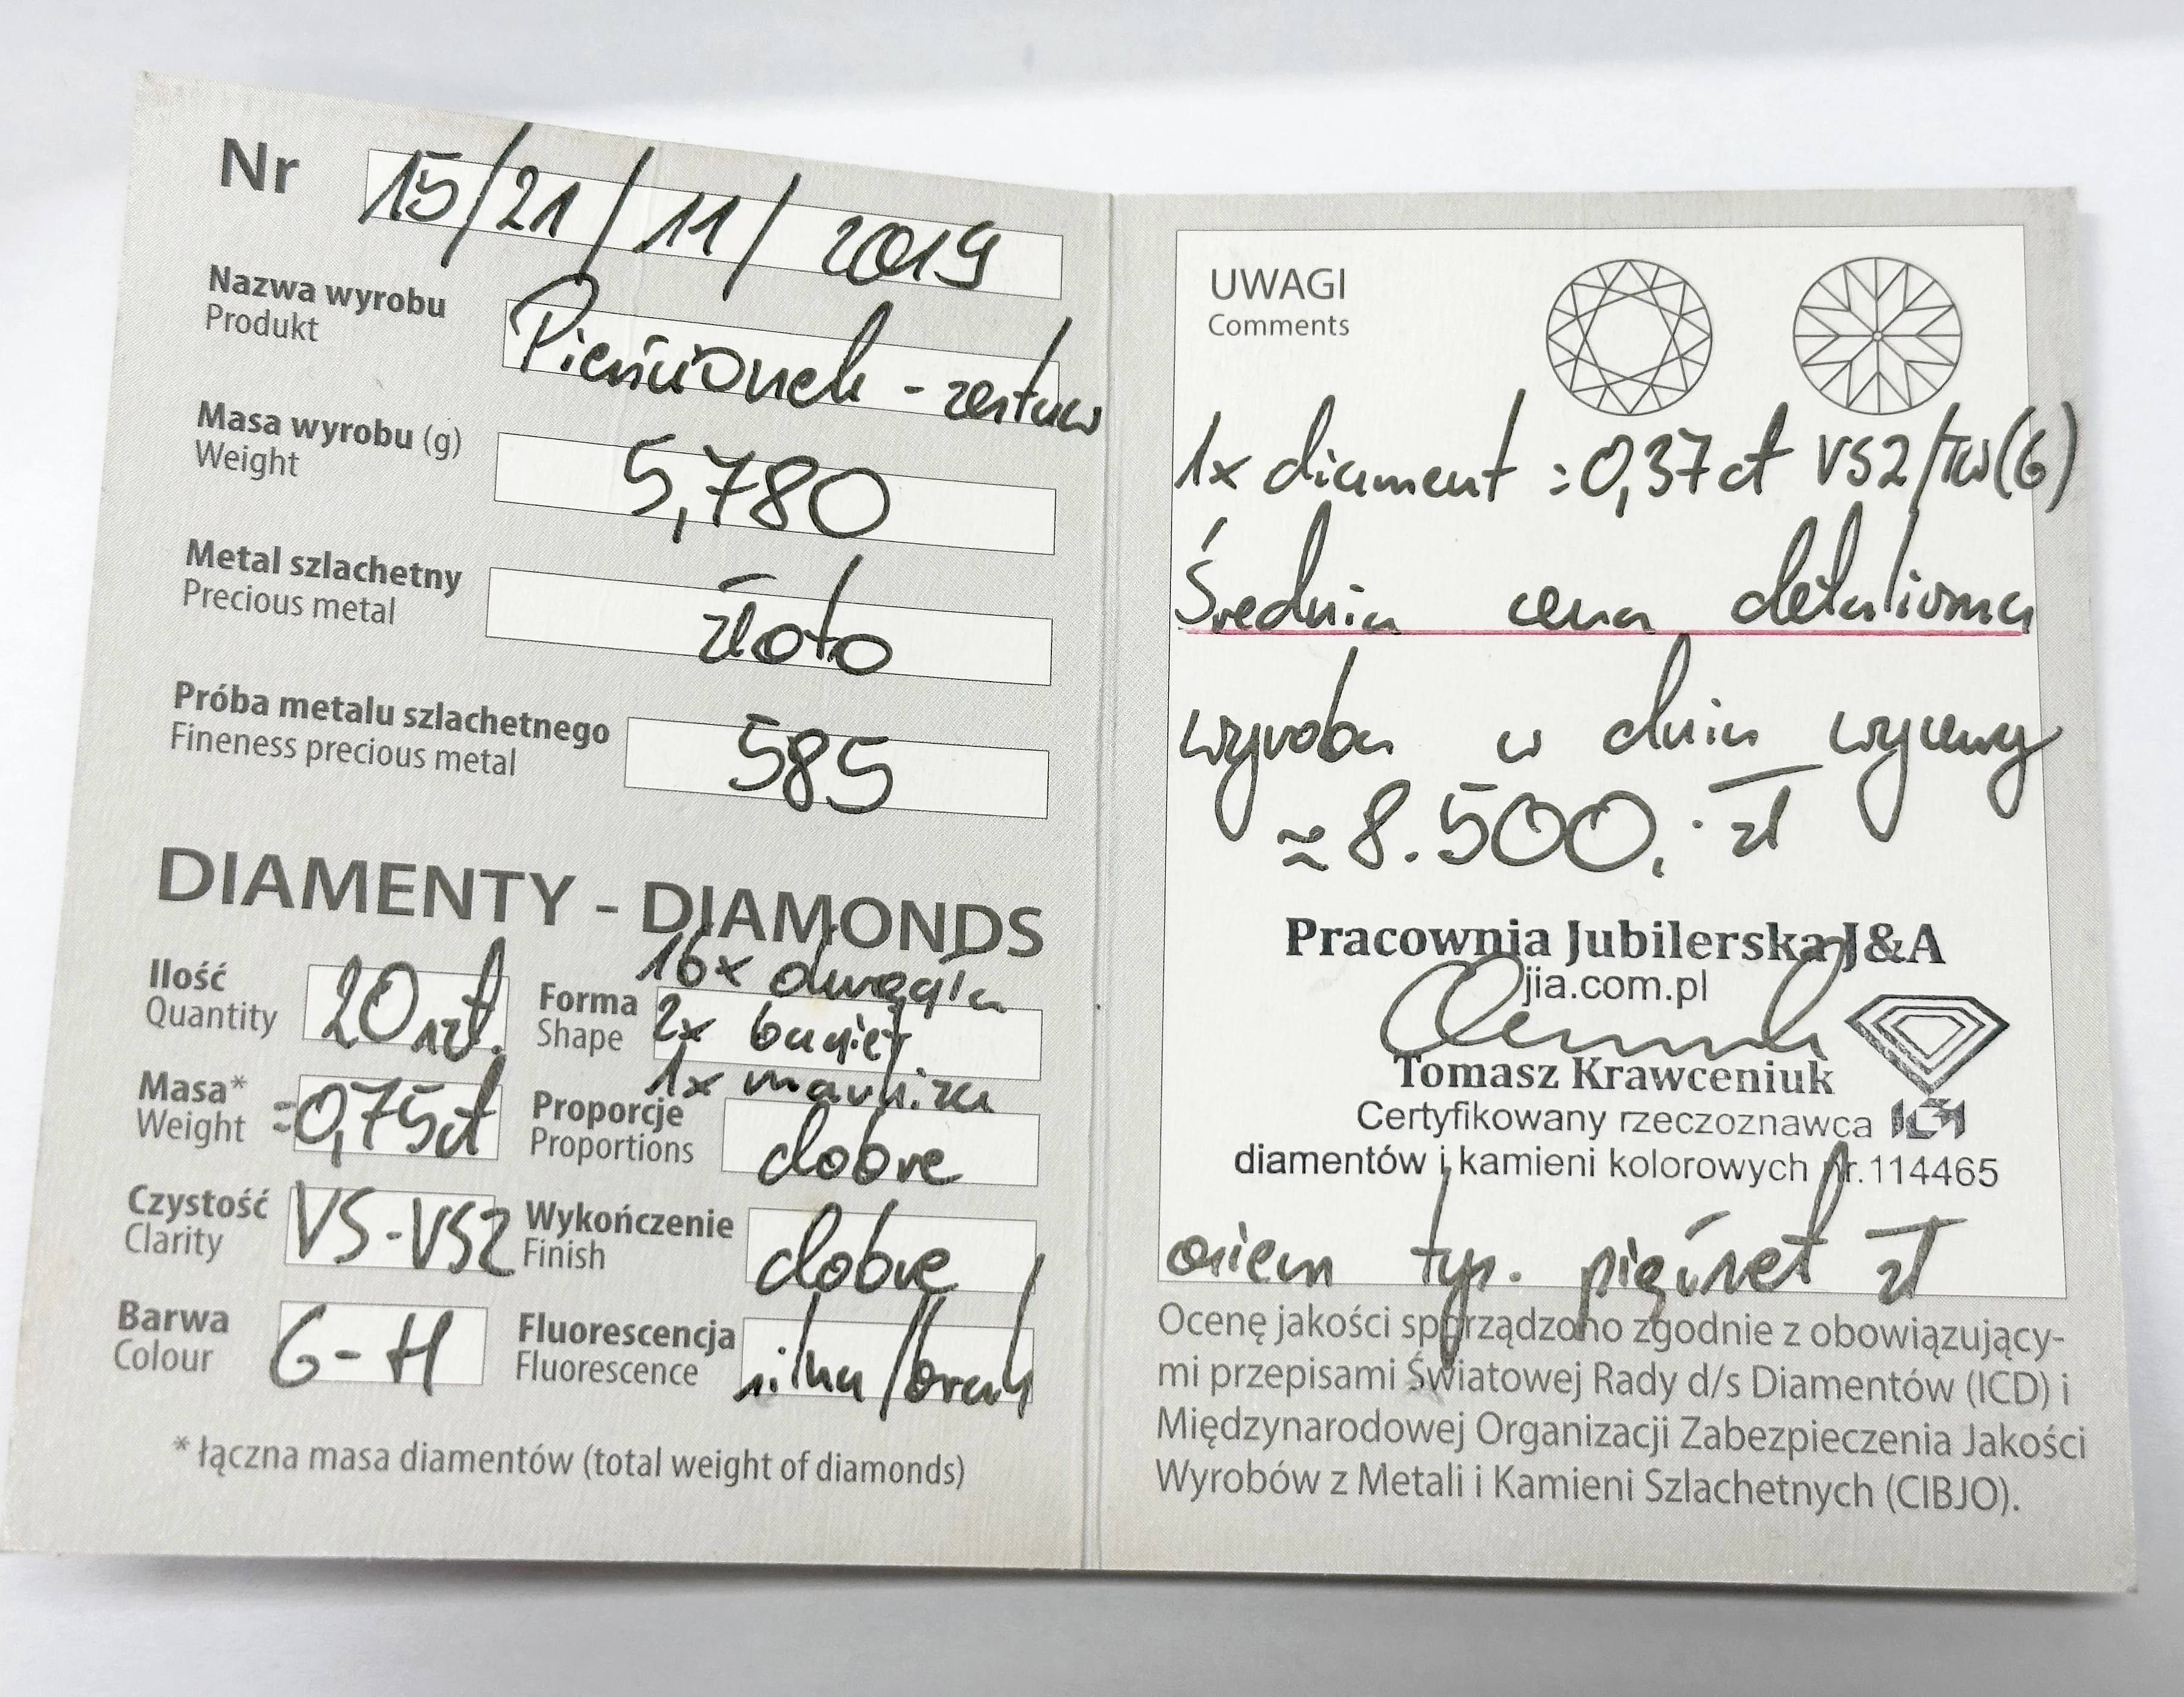 Nr 15/21/11/2019
Nazwa wyrobu
Produkt
Pierścionek - zestaw
Masa wyrobu (g)
Weight
5,780
Metal szlachetny
Precious metal
złoto
Próba metalu szlachetnego
Fineness precious metal
585
DIAMENTY - DIAMONDS
Ilość
Quantity
20 szt.
Forma
Shape
16x okrągła
2x bagiet.
1x markiza
Masa*
Weight
=0,75ct
Proporcje
Proportions
dobre
Czystość
Clarity
VS-VS2
Wykończenie
Finish
dobre
Barwa
Colour
G-H
Fluorescencja
Fluorescence
silna/brak
* łączna masa diamentów (total weight of diamonds)
UWAGI
Comments
1x diament =0,37ct VS2/TW(G)
Średnia cena detaliczna
wyrobu w dniu wyceny
≈8.500,- zł
Pracownia Jubilerska J&A
jia.com.pl
Tomasz Krawceniuk
Certyfikowany rzeczoznawca
diamentów i kamieni kolorowych nr.114465
osiem tys. pięćset zł
Ocenę jakości sporządzono zgodnie z obowiązujący-
mi przepisami Światowej Rady d/s Diamentów (ICD) i
Międzynarodowej Organizacji Zabezpieczenia Jakości
Wyrobów z Metali i Kamieni Szlachetnych (CIBJO).